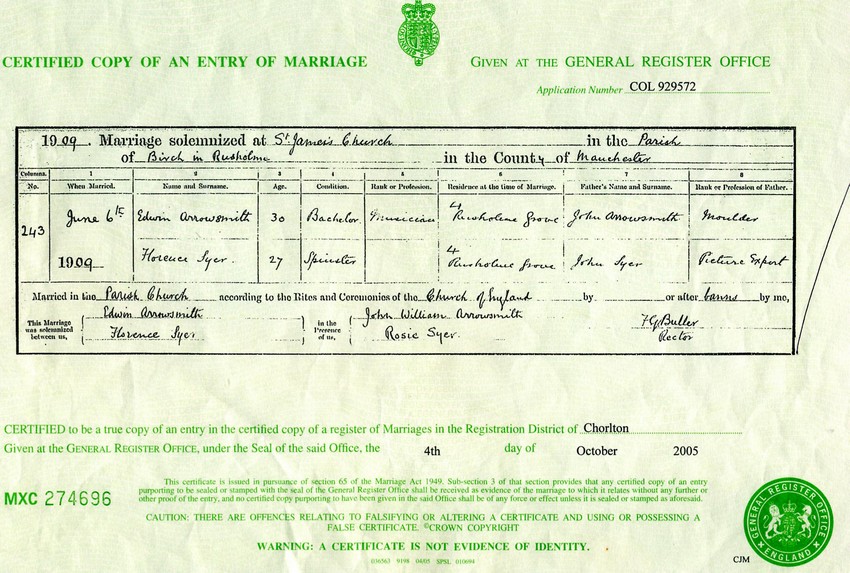 CERTIFIED COPY OF AN ENTRY OF MARRIAGE GIVEN AT THE GENERAL REGISTER OFFICE
Application Number COL 929572
1909. Marriage solemnized at St. James's Church in the Parish
of Birch in Rusholme in the County of Manchester
Columns. 1 2 3 4 5 6 7 8
No. When Married. Name and Surname. Age. Condition. Rank or Profession. Residence at the time of Marriage. Father's Name and Surname. Rank or Profession of Father.
243 June 6th Edwin Arrowsmith 30 Bachelor Musician 4 Rusholme Grove John Arrowsmith Moulder
1909 Florence Syer. 27 Spinster 4 Rusholme Grove John Syer Picture Expert
Married in the Parish Church according to the Rites and Ceremonies of the Church of England by or after banns by me,
This Marriage was solemnized between us, Edwin Arrowsmith in the Presence of us, John William Arrowsmith F G Butler
Florence Syer Rosie Syer. Rector
CERTIFIED to be a true copy of an entry in the certified copy of a register of Marriages in the Registration District of Chorlton
Given at the GENERAL REGISTER OFFICE, under the Seal of the said Office, the 4th day of October 2005
MXC 274696
This certificate is issued in pursuance of section 65 of the Marriage Act 1949. Sub-section 3 of that section provides that any certified copy of an entry
purporting to be sealed or stamped with the seal of the General Register Office shall be received as evidence of the marriage to which it relates without any further or
other proof of the entry, and no certified copy purporting to have been given in the said Office shall be of any force or effect unless it is sealed or stamped as aforesaid.
CAUTION: THERE ARE OFFENCES RELATING TO FALSIFYING OR ALTERING A CERTIFICATE AND USING OR POSSESSING A
FALSE CERTIFICATE. ©CROWN COPYRIGHT
WARNING: A CERTIFICATE IS NOT EVIDENCE OF IDENTITY.
036563 9198 04/05 SPSL 010694
CJM
GENERAL REGISTER OFFICE
ENGLAND